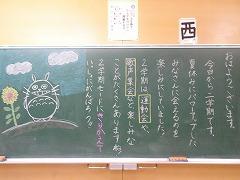 西
おはようございます。
今日から二学期です。
夏休みにパワーアップした
みなさんに会えるのを
楽しみにしていました。
2学期は運動会や、
歌声集会など楽しみな
ことがたくさんありますね。
2学期モードにきりかえて
いっしょにがんばろう。